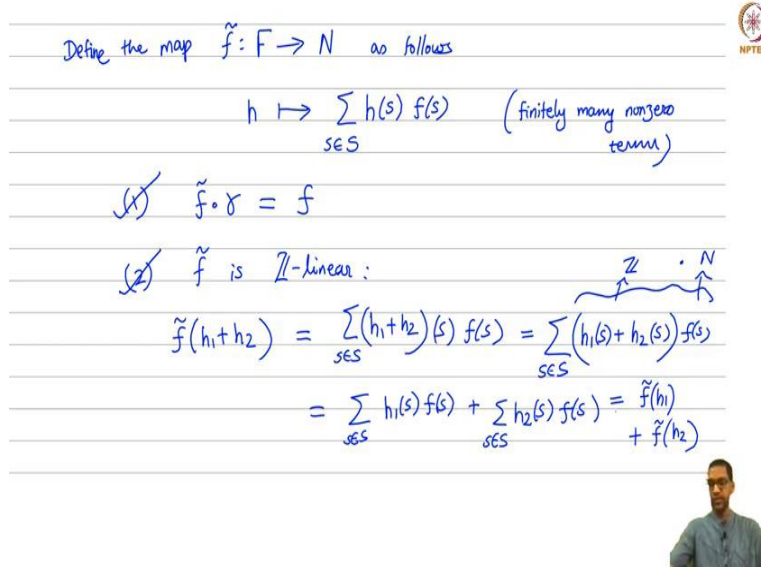 NPTE
Define the map f̃ : F → N as follows
h ↦ ∑ h(s) f(s) (finitely many nonzero
s∈S terms)
(1) f̃ ∘ γ = f
(2) f̃ is ℤ-linear :
ℤ · N
f̃(h₁+h₂) = ∑ (h₁+h₂)(s) f(s) = ∑ (h₁(s)+h₂(s)) f(s)
s∈S s∈S
= ∑ h₁(s) f(s) + ∑ h₂(s) f(s) = f̃(h₁)
s∈S s∈S + f̃(h₂)